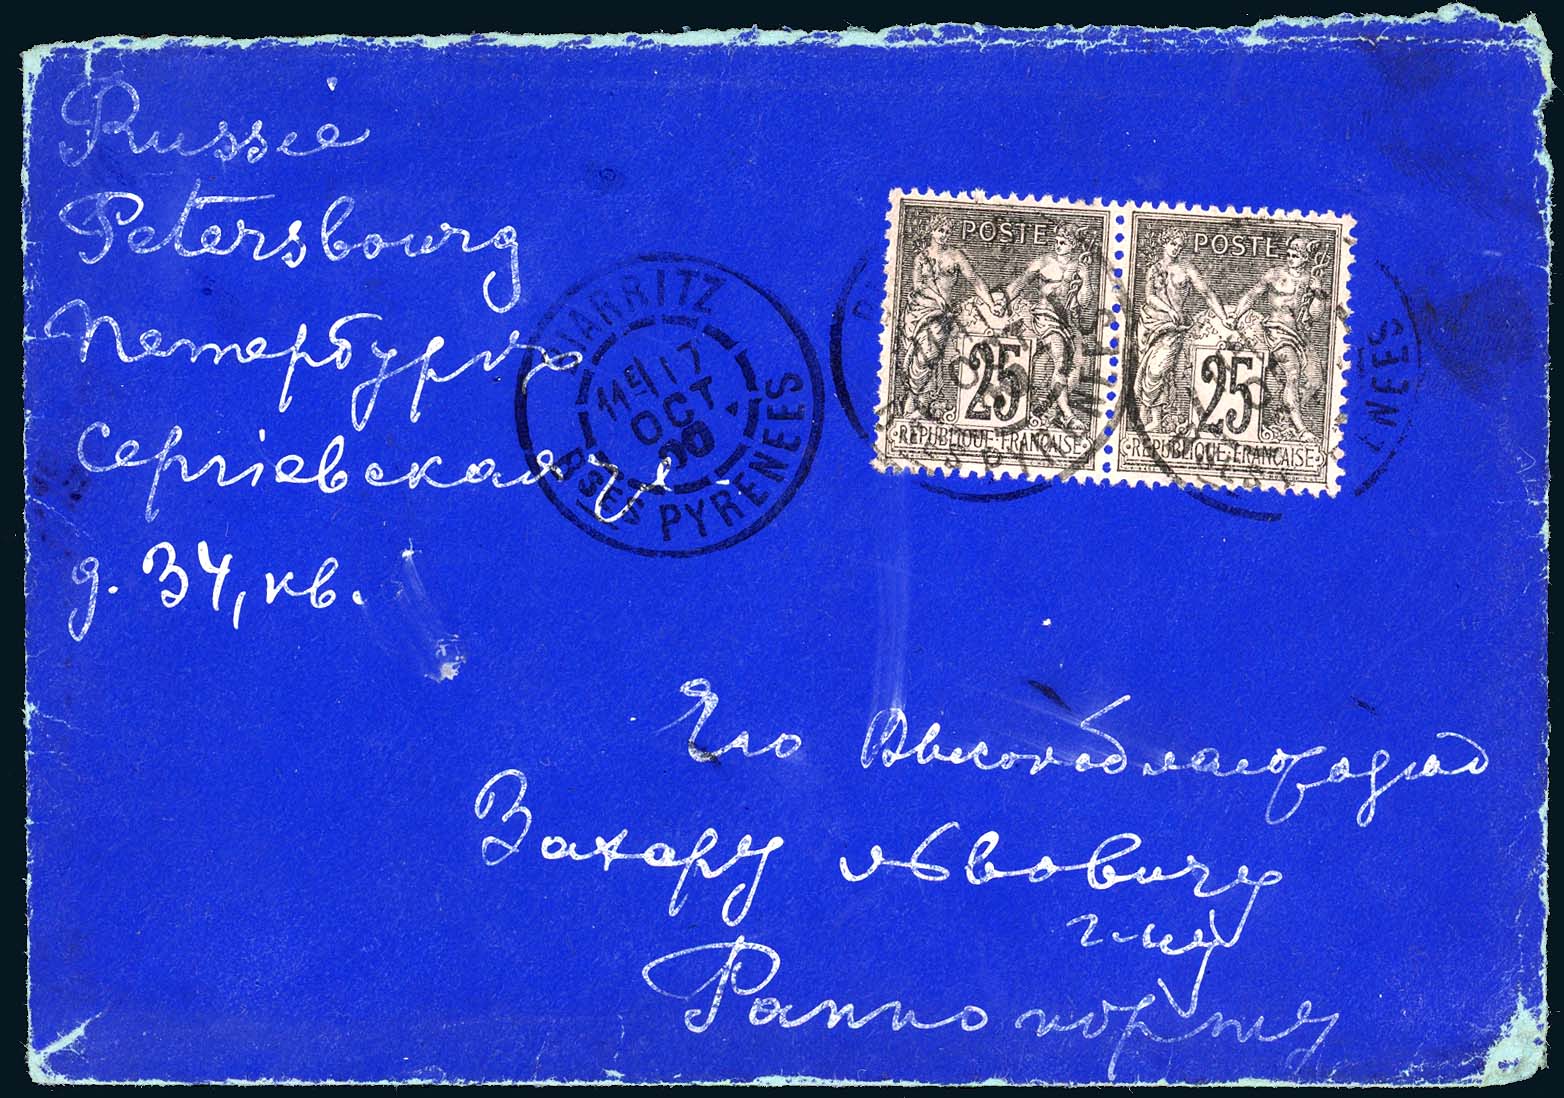 Russie
Petersbourg
Петербургъ
Сергіевская ул.
д. 34, кв.
BIARRITZ
11E/17
OCT
00
BSES PYRENEES
POSTE
25
REPUBLIQUE FRANCAISE
POSTE
25
REPUBLIQUE FRANCAISE
Его Высокоблагородію
Захару Львовичу
г-ну
Раппопорту